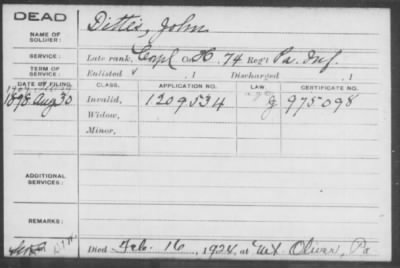 DEAD
NAME OF SOLDIER: Dittis, John
SERVICE: Late rank, Corpl Co. H. 74 Reg't Pa. Inf.
TERM OF SERVICE: Enlisted , 1 Discharged , 1
DATE OF FILING. CLASS. APPLICATION NO. LAW. CERTIFICATE NO.
1898 Aug 30 Invalid, 1209534 G 975098
Widow,
Minor,
ADDITIONAL SERVICES:
REMARKS:
Died Feb. 16, 1924 at Mt Oliver, Pa